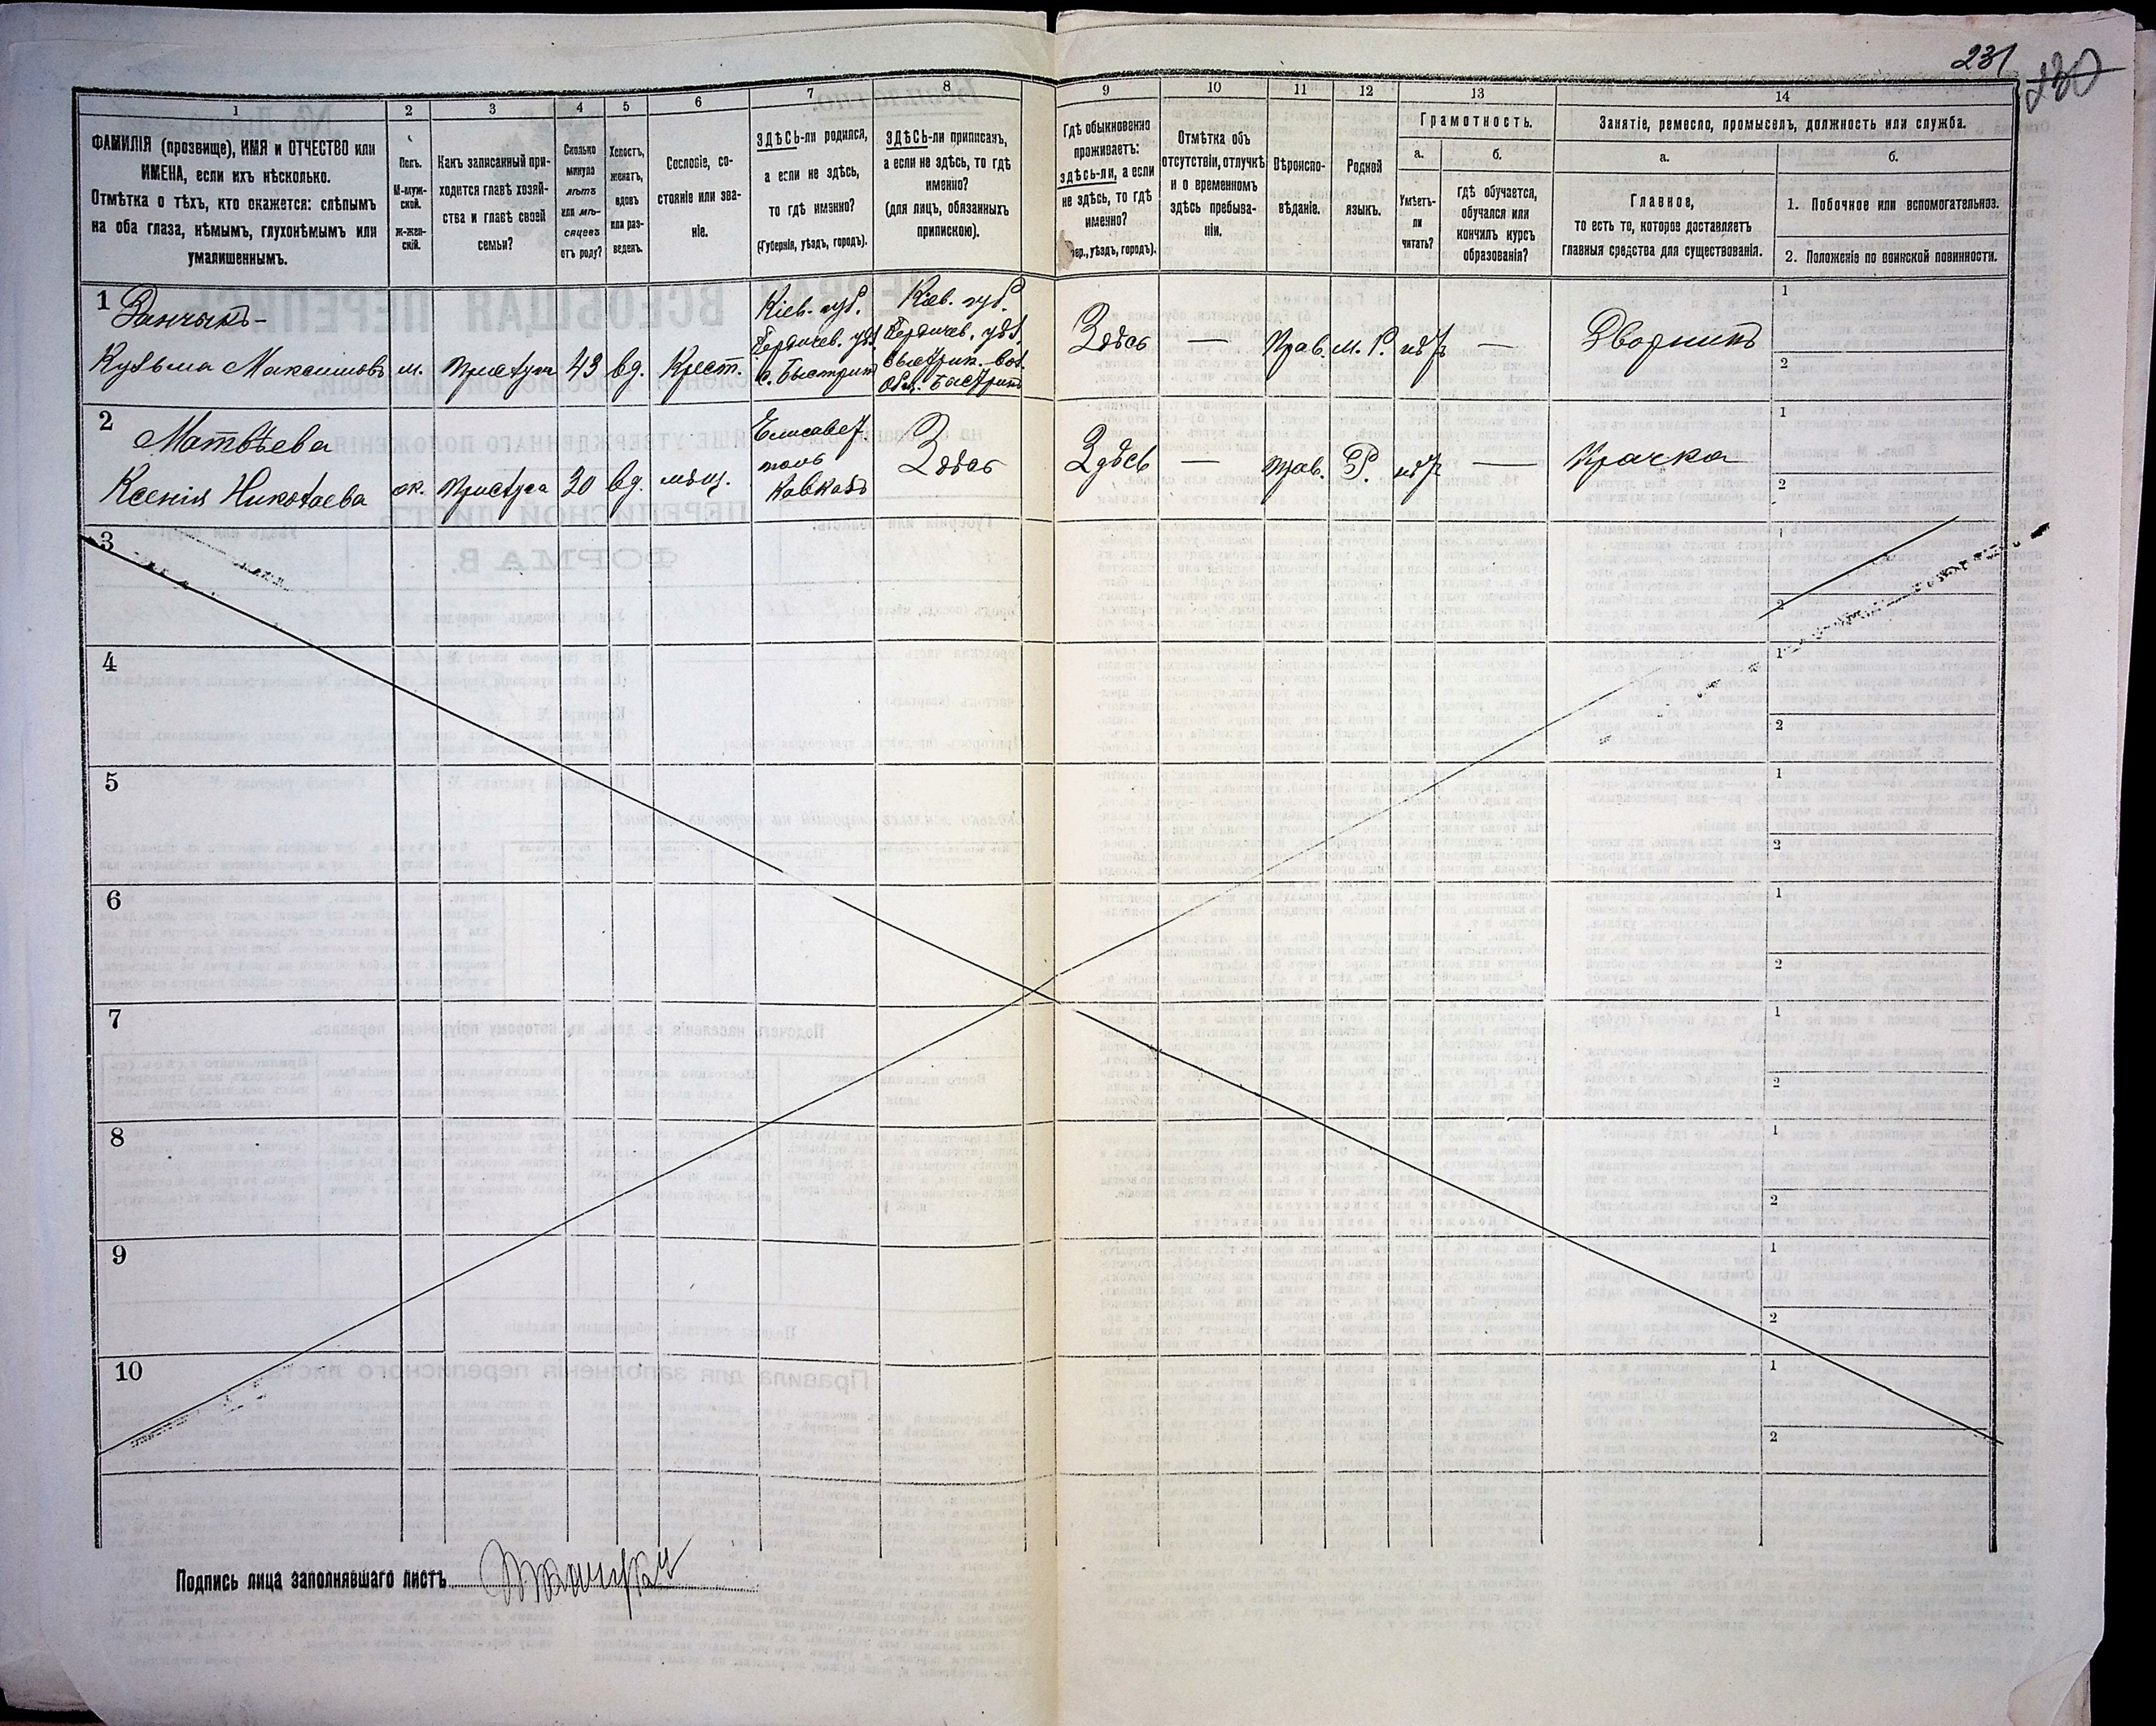 231
230
1
2
3
4
5
6
7
8
9
10
11
12
13
14
ФАМИЛІЯ (прозвище), ИМЯ и ОТЧЕСТВО или
ИМЕНА, если ихъ нѣсколько.
Отмѣтка о тѣхъ, кто окажется: слѣпымъ
на оба глаза, нѣмымъ, глухонѣмымъ или
умалишеннымъ.
Полъ.
М-муж-
ской.
Ж-жен-
скій.
Какъ записанный при-
ходится главѣ хозяй-
ства и главѣ своей
семьи?
Сколько
минуло
лѣтъ
или мѣ-
сяцевъ
отъ роду?
Холостъ,
женатъ,
вдовъ
или раз-
веденъ.
Сословіе, со-
стояніе или зва-
ніе.
ЗДѢСЬ-ли родился,
а если не здѣсь,
то гдѣ именно?
(Губернія, уѣздъ, городъ).
ЗДѢСЬ-ли приписанъ,
а если не здѣсь, то гдѣ
именно?
(для лицъ, обязанныхъ
припискою).
Гдѣ обыкновенно
проживаетъ:
здѣсь-ли, а если
не здѣсь, то гдѣ
именно?
(Губер., уѣздъ, городъ).
Отмѣтка объ
отсутствіи, отлучкѣ
и о временномъ
здѣсь пребыва-
ніи.
Вѣроиспо-
вѣданіе.
Родной
языкъ.
Грамотность.
а.
б.
Умѣетъ-
ли
читать?
гдѣ обучается,
обучался или
кончилъ курсъ
образованія?
Занятіе, ремесло, промыселъ, должность или служба.
а.
б.
Главное,
то есть то, которое доставляетъ
главныя средства для существованія.
1. Побочное или вспомогательное.
2. Положеніе по воинской повинности.
1
Кузьма Максимовъ
м.
Прислуга
43
вд.
Крест.
Кіев. губ.
Бердичев. уѣз.
с. Быстрикъ
Кіев. губ.
Бердичев. уѣз.
Быстрик. вол.
общ. Быстрикъ
Здѣсь
—
Прав.
м. Р.
нѣт
—
Дворникъ
1
2
2
Матвѣева
Ксенія Николаева
ж.
Прислуга
30
вд.
мѣщ.
Елисавет
поль
Кавказъ
Здѣсь
Здѣсь
—
Прав.
Р.
нѣт
—
Прачка
1
2
3
1
2
4
1
2
5
1
2
6
1
2
7
1
2
8
1
2
9
1
2
10
1
2
Подпись лица заполнявшаго листъ